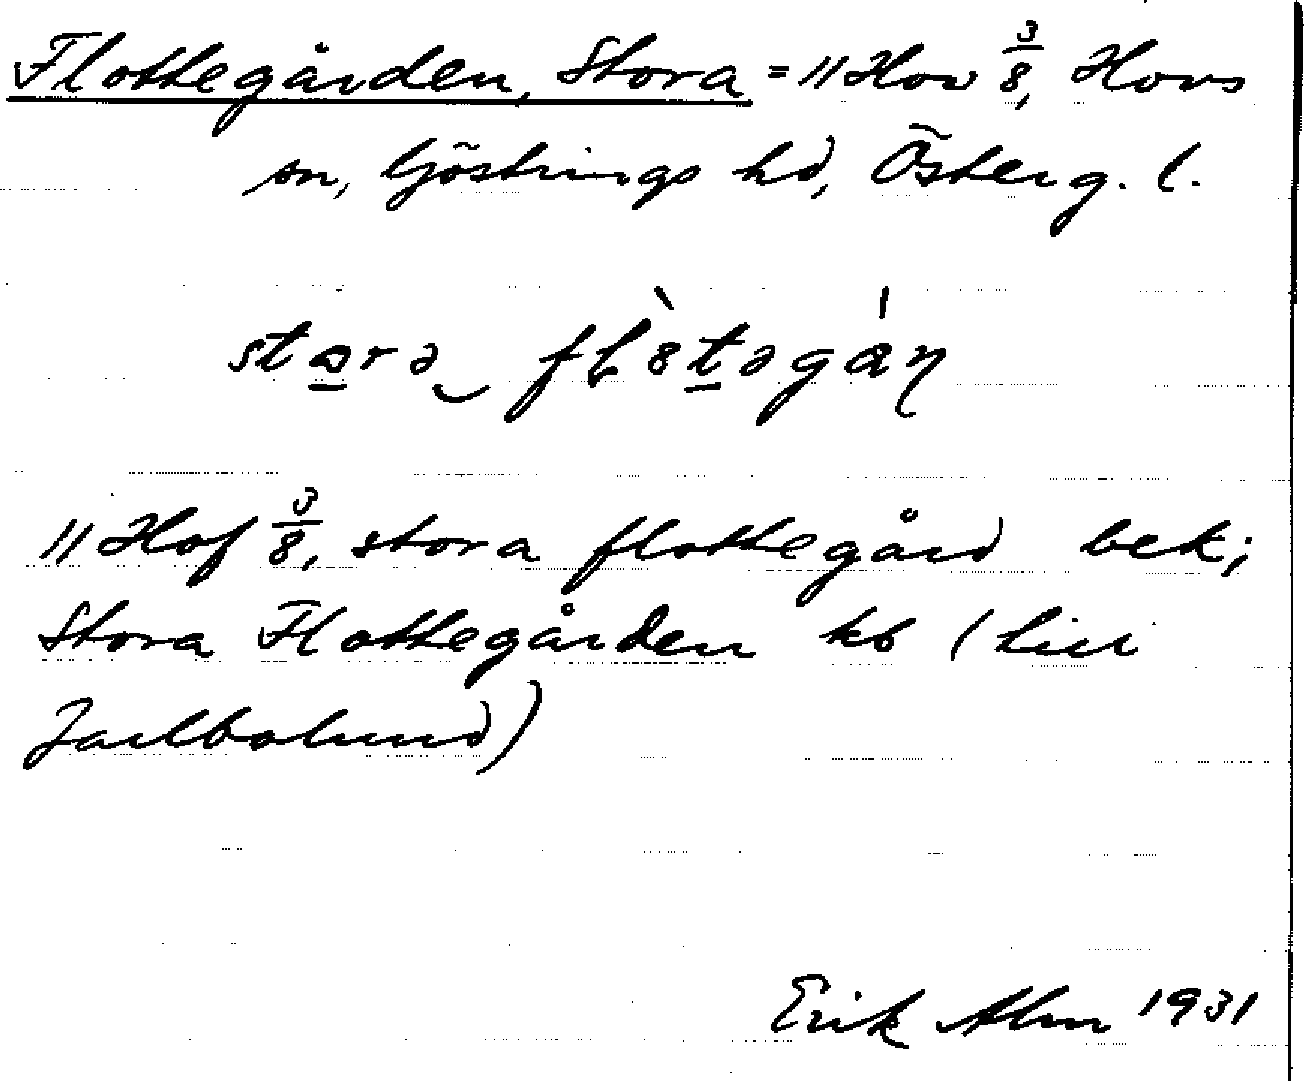 Flottegården, Stora = 11 Hov 3/8, Hovs
sn, Göstrings hd, Österg. l.
11 Hof 3/8, stora flottegård bek;
Stora Flottegården kb (till
Jarlbolund)
Erik Alm 1931